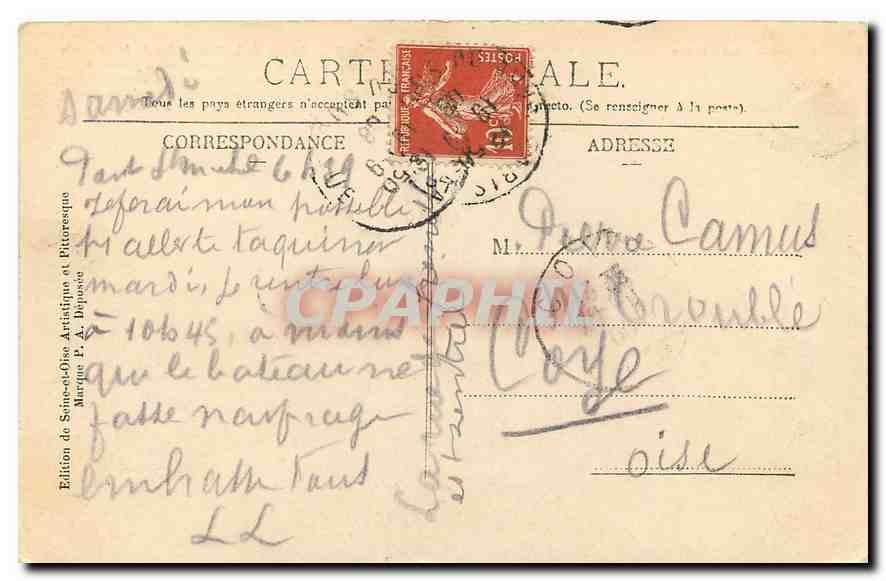 CARTE POSTALE.
Tous les pays étrangers n'acceptent pas recto. (Se renseigner à la poste).
CORRESPONDANCE
ADRESSE
RÉPUBLIQUE FRANÇAISE
POSTES
10
PARIS
Samedi
Pont St michel 6h 19
Je ferai mon possible
pr aller te taquiner
mardi, Je rentre lun
à 10h45, a moins
que le bateau ne
fasse naufrage
embrasse tous
LL
M. Pierre Camus
Troublé
Coye
Oise
CPAPHIL
Edition de Seine-et-Oise Artistique et Pittoresque
Marque P. A. Déposée